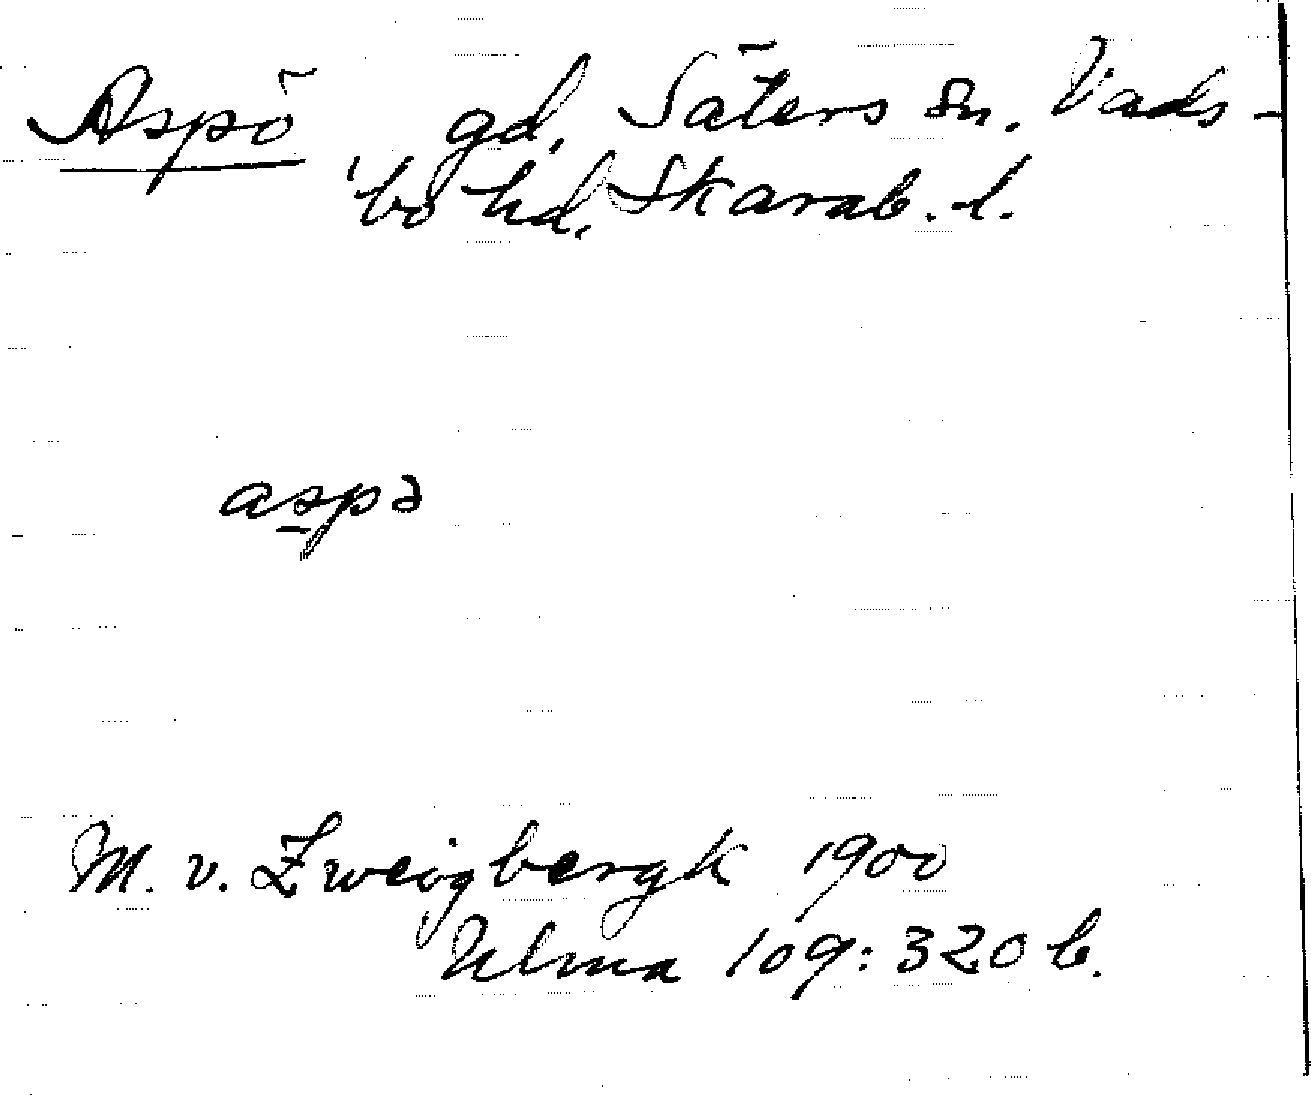 Aspö gd, Säters sn. Vads-
bo hd, Skarab. l.
aspə
M. v. Zweigbergk 1900
Ulma 109:320 b.